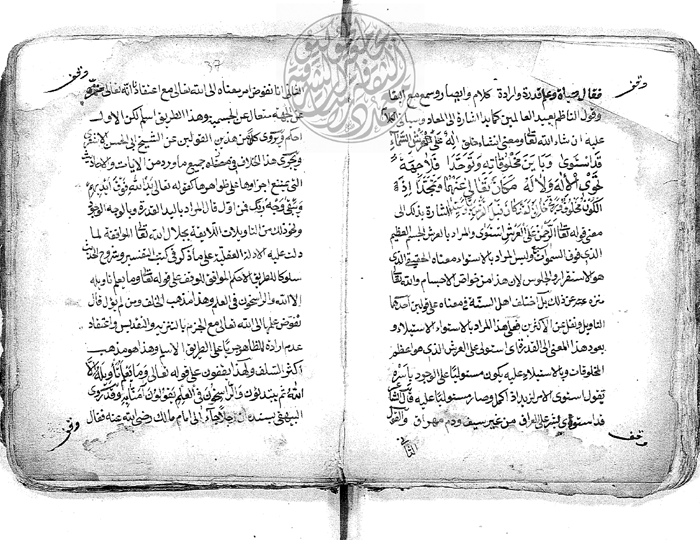 وقف
فقال حياة وعلم قدرة وارادة كلام وابصار وسمع مع البقا
وقول الناظم يعيد العالمين كما بدا اشارة الى المعاد وسياتى
عليه ان شاء الله تعالى ومعنى انشاد خلق اله على عرش السماء
قد استوى وباين مخلوقاته وتوحدا فلا جهة
تحوى الاله ولا له مكان تعالى عنهما وتمجدا اذ
الكون مخلوق وربى خالق لقد كان قبل الكون اشار بذلك الى
معنى قوله تعالى الرحمن على العرش استوى والمراد بالعرش الجسم العظيم
الذى فوق السموات وليس المراد بالاستواء معناه الحقيقة الذى
هو الاستقرار والجلوس لان هذا من خواص الاجسام والله تعالى
منزه عنه عن ذلك بل اختلف اهل السنة فى معناه على قولين احدهما
التاويل ونقل عن الاكثرين فعلى هذا المراد بالاستواء الاستيلاء و
يعود هذا المعنى الى القدرة اى استولى على العرش الذى هو اعظم
المخلوقات وبالاستيلاء عليه يكون مستوليا على الوجود باسره
تقول استوى الامر لزيد اذا كمل وصار مستوليا عليه قال الشاعر
قد استوى بشر على العراق من غير سيف ودم مهراق والقول
الثانى
وقف
وقف
37
الثانى انا نفوض امر معناه الى الله تعالى مع اعتقاد انه تعالى منزه
عن الجهة متعال عن الجسمية وهذا الطريق اسلم لكن الاول
احكم ويروى كل من هذين القولين عن الشيخ ابى الحسن الاشعرى
ويجرى هذا الخلاف فى معنى جميع ما ورد من الايات والاحاديث
التى يمتنع اجراوها على ظواهرها كقوله تعالى يد الله فوق ايديهم
ويبقى وجه ربك فمن اول قال المراد باليد القدرة وبالوجه الوجود
ونحو ذلك من التاويلات اللائقة بجلال الله تعالى الموافقة لما
دلت عليه الادلة العقلية على ما ذكر فى كتب التفسير وشروح الحديث
سلوكا للطريق الاحكم الموافق للوقف على قوله تعالى وما يعلم تاويله
الا الله والراسخون فى العلم وهذا مذهب الخلف ومن لم يؤل قال
نفوض علمها الى الله تعالى مع الجزم بالتنزيه والتقديس واعتقاد
عدم ارادة للظاهر جريا على الطريق الاسلم وهذا هو مذهب
اكثر السلف ولهذا يقفون على قوله تعالى وما يعلم تاويله الا
الله ثم يبتدئون والراسخون فى العلم يقولون آمنا به وقد روى
البيهقى بسنده ان رجلا جاء الى امام مالك رضى الله عنه فقال
وقف